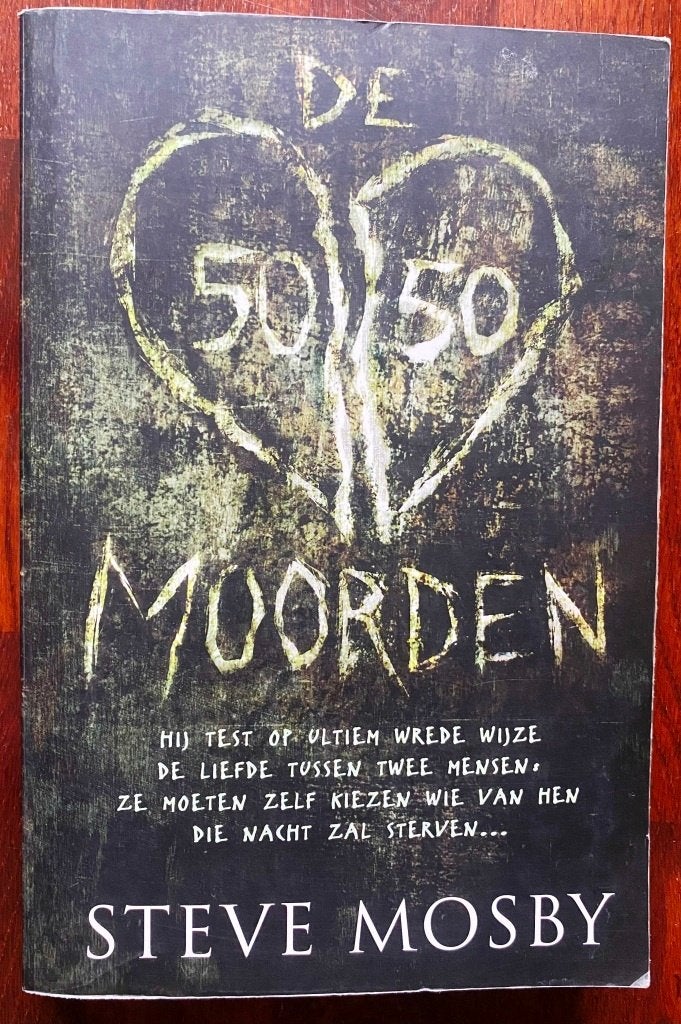 DE
50 50
MOORDEN
HIJ TEST OP ULTIEM WREDE WIJZE
DE LIEFDE TUSSEN TWEE MENSEN:
ZE MOETEN ZELF KIEZEN WIE VAN HEN
DIE NACHT ZAL STERVEN...
STEVE MOSBY